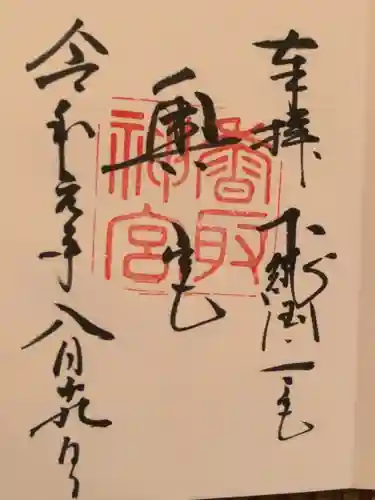 奉拝 下総国一宮
奥宮
香取神宮
令和元年八月廿九日